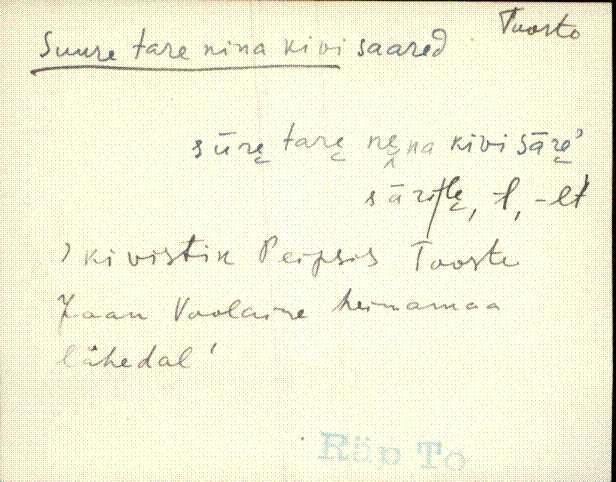 Toosto
Suure tare nina kivi saared
sūrę tarę nęna kivi sārę'
sāri̮lę, -l, -lt
' kivistik Peipsis Tooste
Jaan Voolaine heinamaa
lähedal '
Räp To